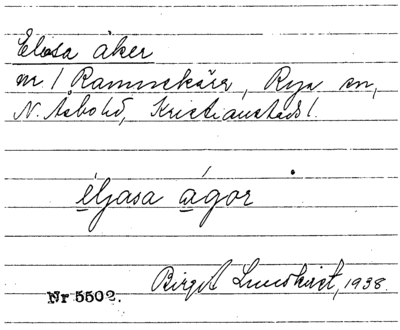 Elosa åker
m. 1 Rammekärr, Rya sn,
N. Åsbo hd, Kristianstads l.
éljasa ágor
Birgit Lundkvist, 1938.
Nr 5502.